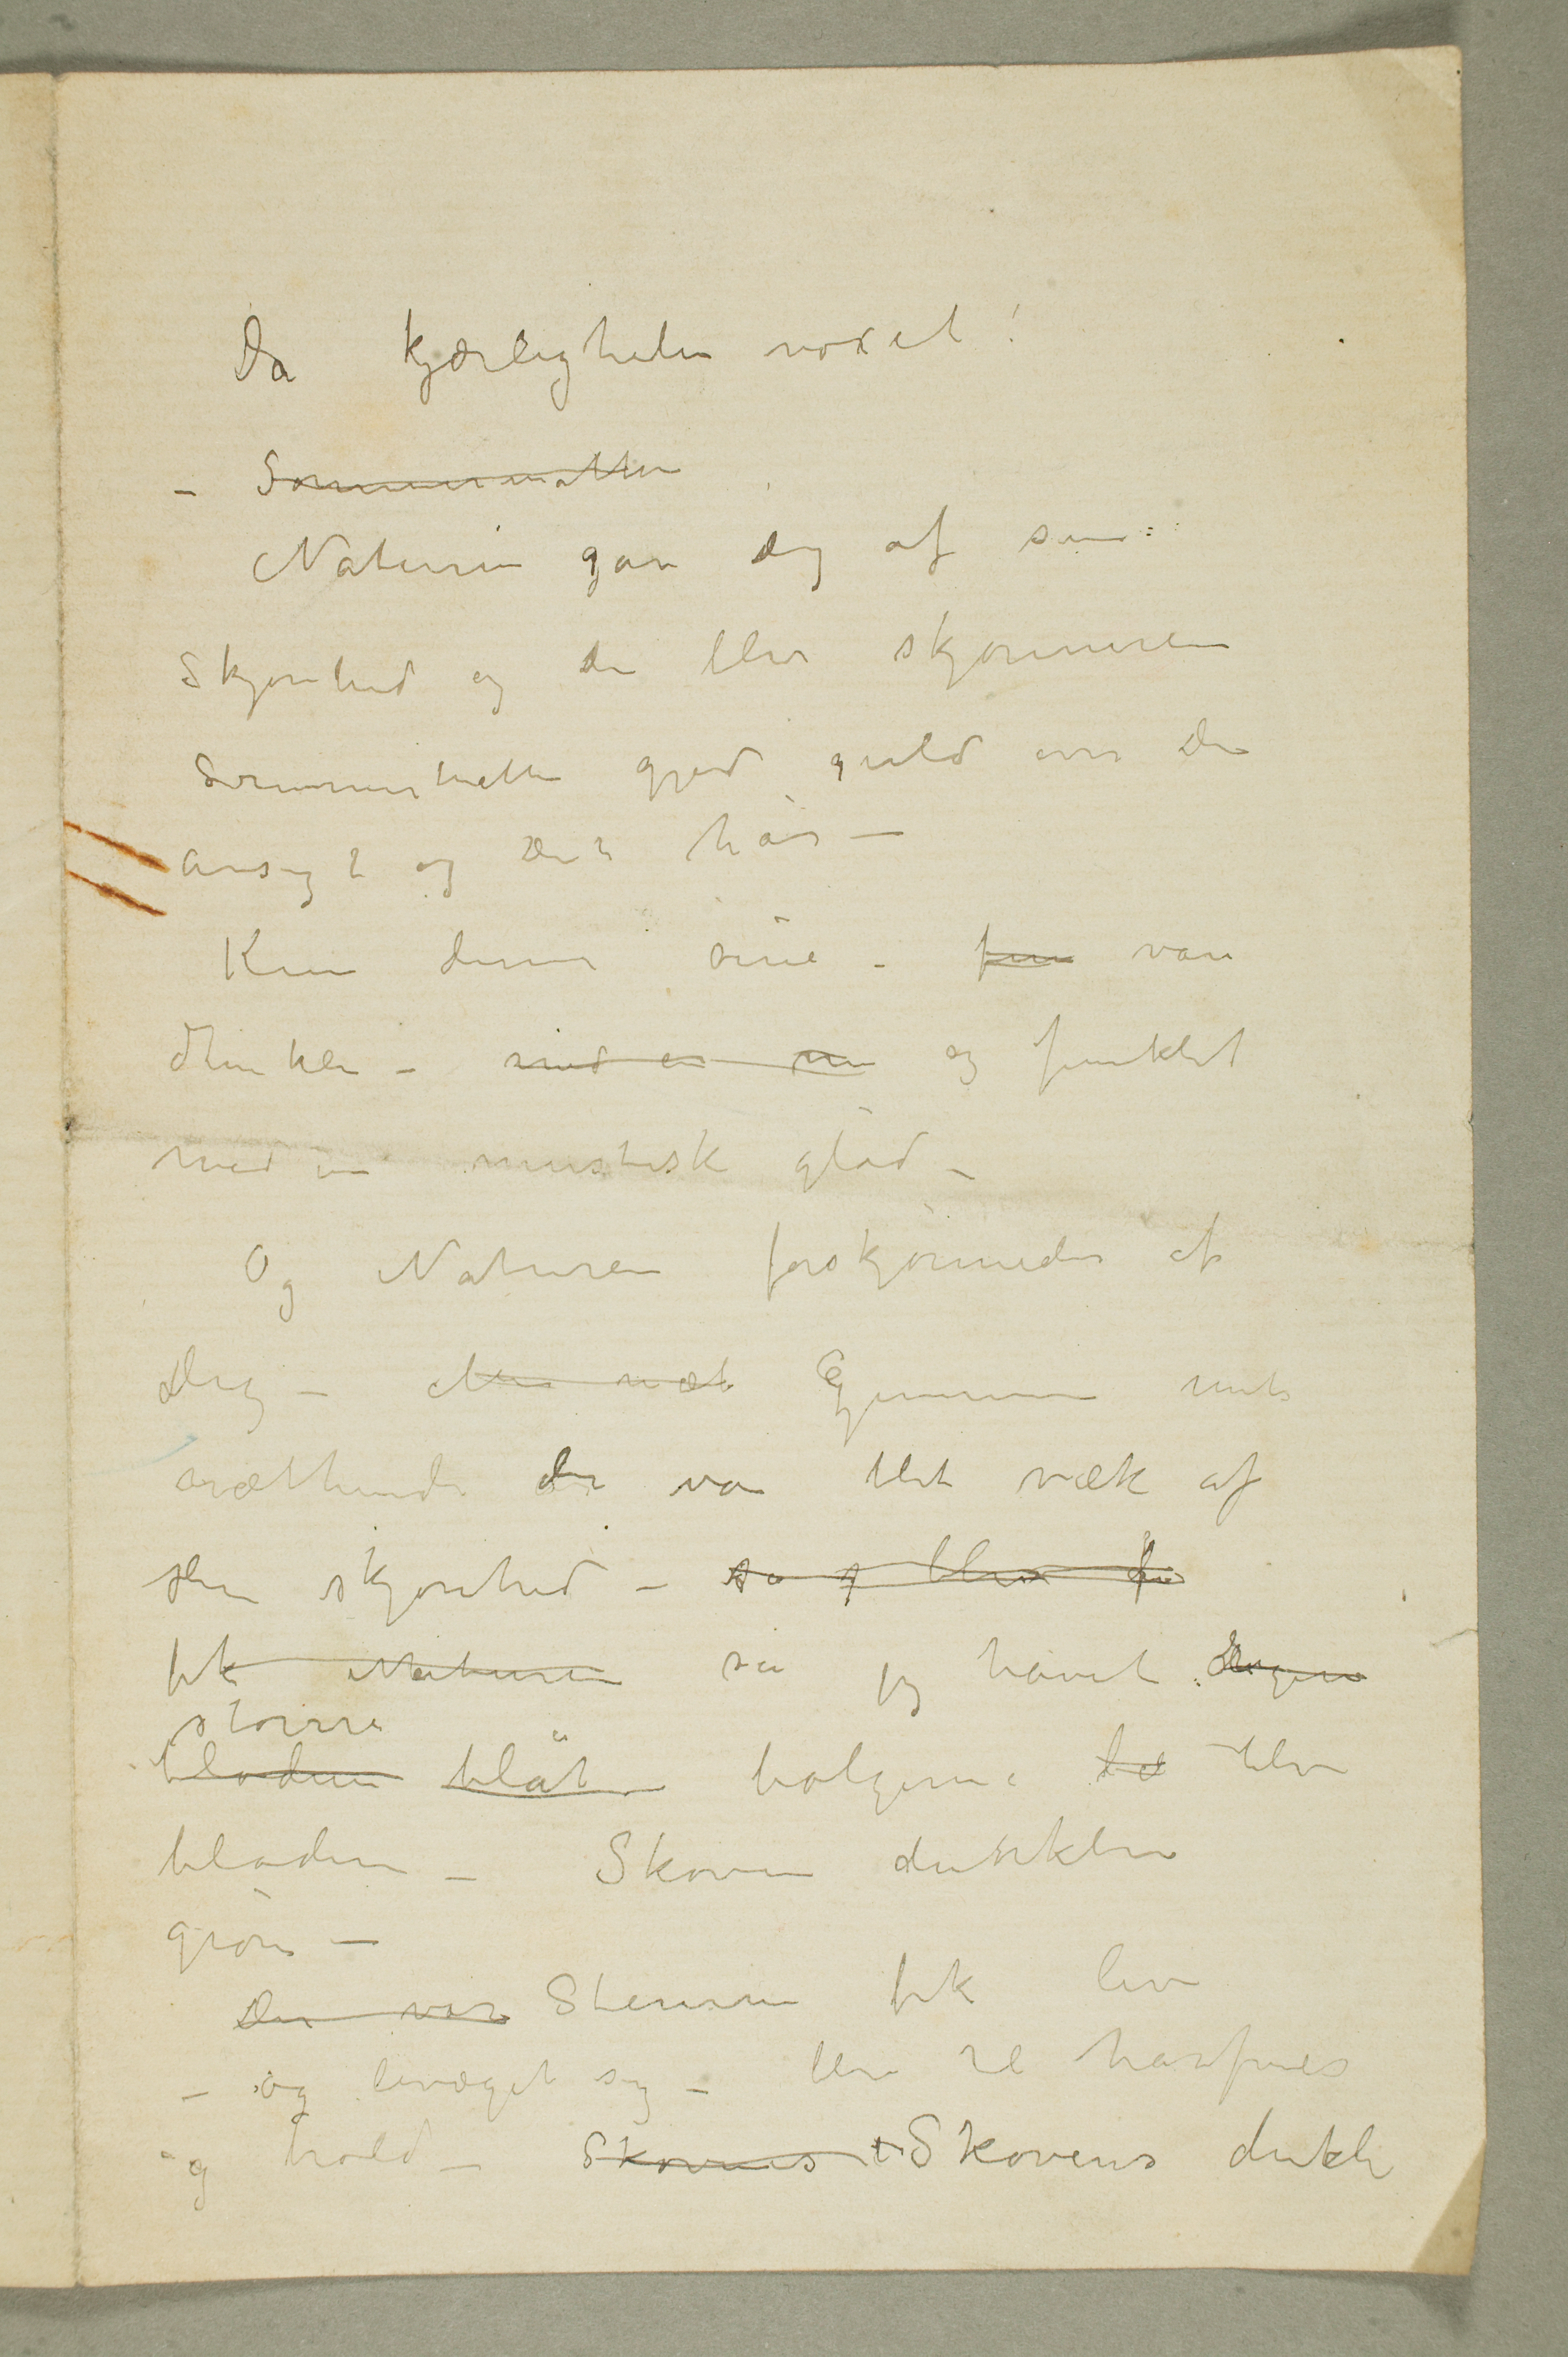 Da kjærligheden voxet!
– Sommernatten
Naturen gav dig af sin
Skjønhed og du blev skjønneren
Sommernatten gjød guld over dit
ansigt og dit hår –
Kun dine øine – var
dunkle – og funklet
med en mystisk glød –
Og Naturen forskjønnedes af
dig – Gjennem
du var blit væk af
din skjønhed – så blev
fik Naturen så jeg havet
større
blådere blåt bølgerne blev
blådere – Skoven dunklere
grøn –
Der var Stenene fik liv
– og bevæget sig – blev til havfruer
og trold – Skovens Skovens dunkle